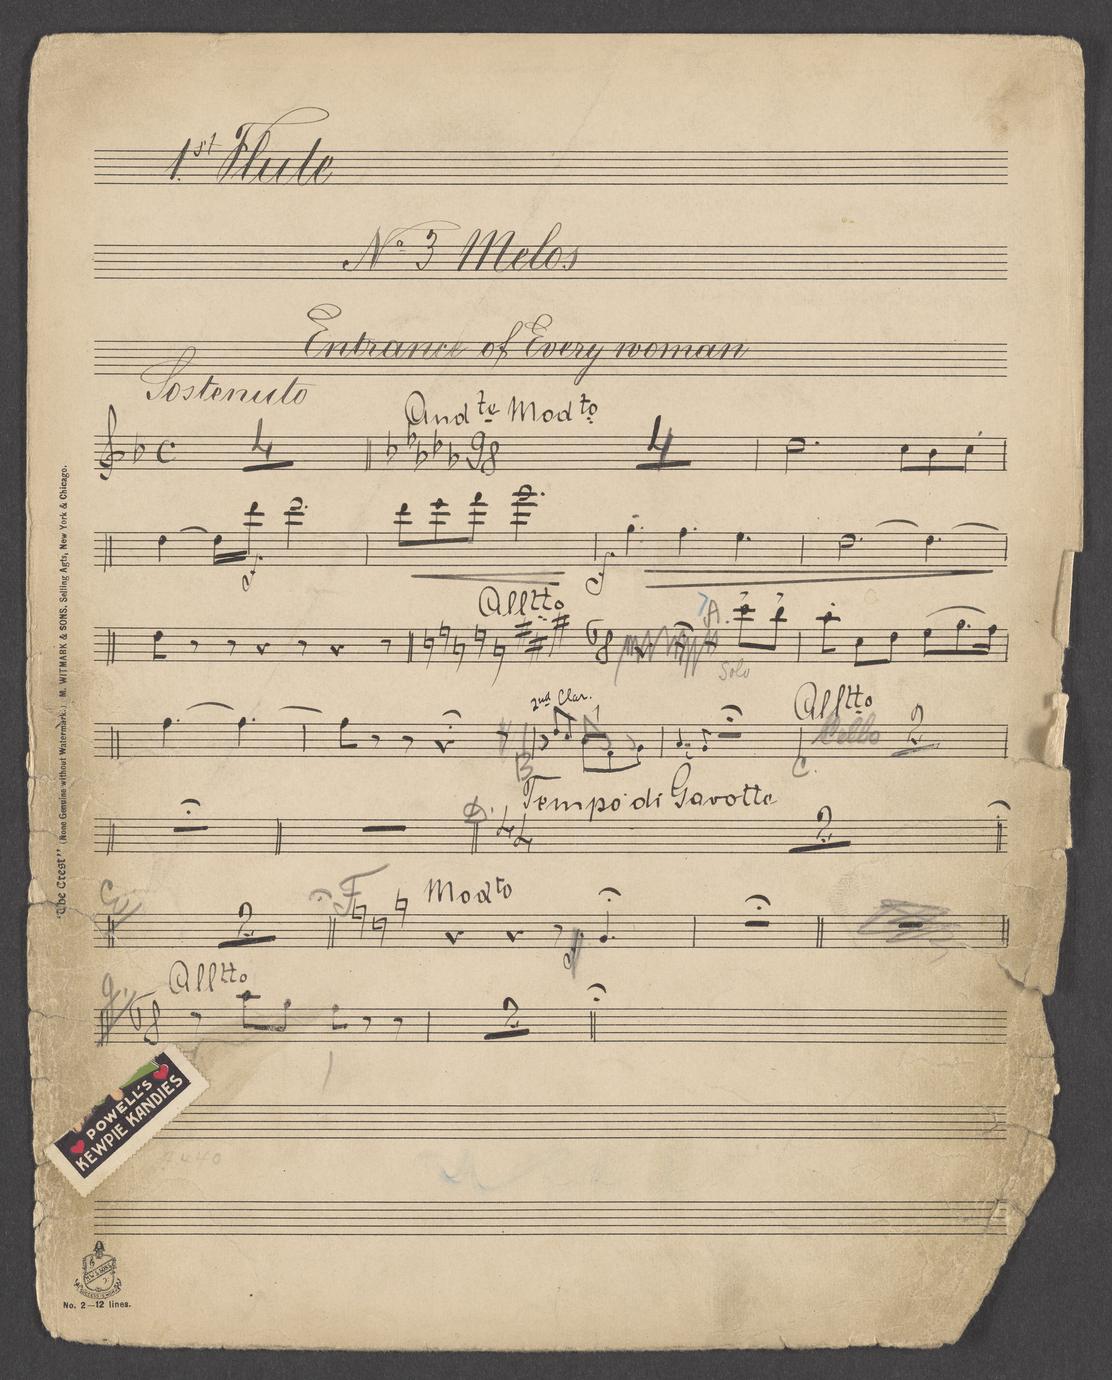 1st Flute
No 3 Melos
Entrance of Every woman
Sostenuto
Andte Modto
4
4
Alltto
A.
Solo
2nd Clar.
Alltto
Cello
2
B
C.
Tempo di Gavotte
D.
2
Modto
F
2
Alltto
2
POWELL'S
KEWPIE KANDIES
A440
"The Crest" (None Genuine without Watermark.) M. WITMARK & SONS, Selling Agts, New York & Chicago.
No. 2—12 lines.